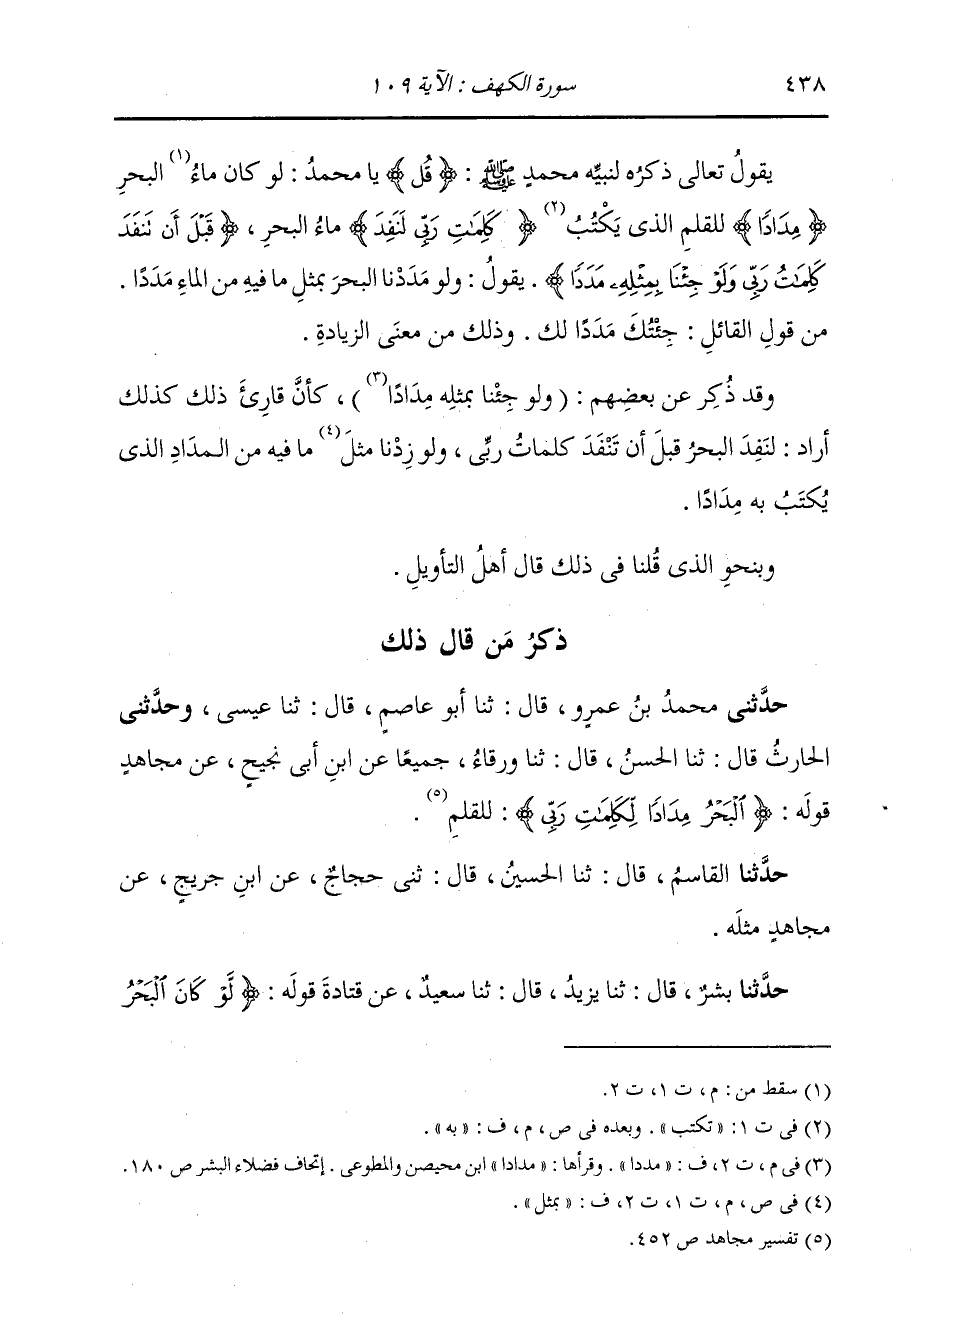 ٤٣٨ سورة الكهف : الآية ١٠٩
يقولُ تعالى ذكرُه لنبيِّه محمدٍ ﷺ : ﴿ قُل ﴾ يا محمدُ : لو كان ماءُ(١) البحرِ
﴿ مِدَادًا ﴾ للقلمِ الذى يَكْتُبُ(٢) ﴿ كَلِمَٰتِ رَبِّى لَنَفِدَ ﴾ ماءُ البحرِ ، ﴿ قَبْلَ أَن تَنفَدَ
كَلِمَٰتُ رَبِّى وَلَوْ جِئْنَا بِمِثْلِهِۦ مَدَدًا ﴾ . يقولُ : ولو مَدَدْنا البحرَ بمثلِ ما فيهِ من الماءِ مَدَدًا .
من قولِ القائلِ : جِئْتُكَ مَدَدًا لك . وذلك من معنَى الزيادةِ .
وقد ذُكِر عن بعضِهم : ( ولو جِئْنا بمثلِه مِدَادًا(٣) ) ، كأنَّ قارئَ ذلك كذلك
أراد : لنَفِدَ البحرُ قبلَ أن تَنْفَدَ كلماتُ ربِّى ، ولو زِدْنا مثلَ(٤) ما فيه من المدَادِ الذى
يُكتَبُ به مِدَادًا .
وبنحوِ الذى قُلنا فى ذلك قال أهلُ التأويلِ .
ذكرُ مَن قال ذلك
حدَّثنى محمدُ بنُ عمرٍو ، قال : ثنا أبو عاصمٍ ، قال : ثنا عيسى ، وحدَّثنى
الحارثُ قال : ثنا الحسنُ ، قال : ثنا ورقاءُ ، جميعًا عن ابنِ أبى نجيحٍ ، عن مجاهدٍ
قولَه : ﴿ ٱلْبَحْرُ مِدَادًا لِّكَلِمَٰتِ رَبِّى ﴾ : للقلمِ(٥) .
حدَّثنا القاسمُ ، قال : ثنا الحسينُ ، قال : ثنى حجاجٌ ، عن ابنِ جريجٍ ، عن
مجاهدٍ مثلَه .
حدَّثنا بشرٌ ، قال : ثنا يزيدُ ، قال : ثنا سعيدٌ ، عن قتادةَ قولَه : ﴿ لَّوْ كَانَ ٱلْبَحْرُ
(١) سقط من : م ، ت ١ ، ت ٢.
(٢) فى ت ١ : « تكتب » . وبعده فى ص ، م ، ف : « به » .
(٣) فى م ، ت ٢ ، ف : « مددا » . وقرأها : « مدادا » ابن محيصن والمطوعى . إتحاف فضلاء البشر ص ١٨٠ .
(٤) فى ص ، م ، ت ١ ، ت ٢ ، ف : « بمثل » .
(٥) تفسير مجاهد ص ٤٥٢.